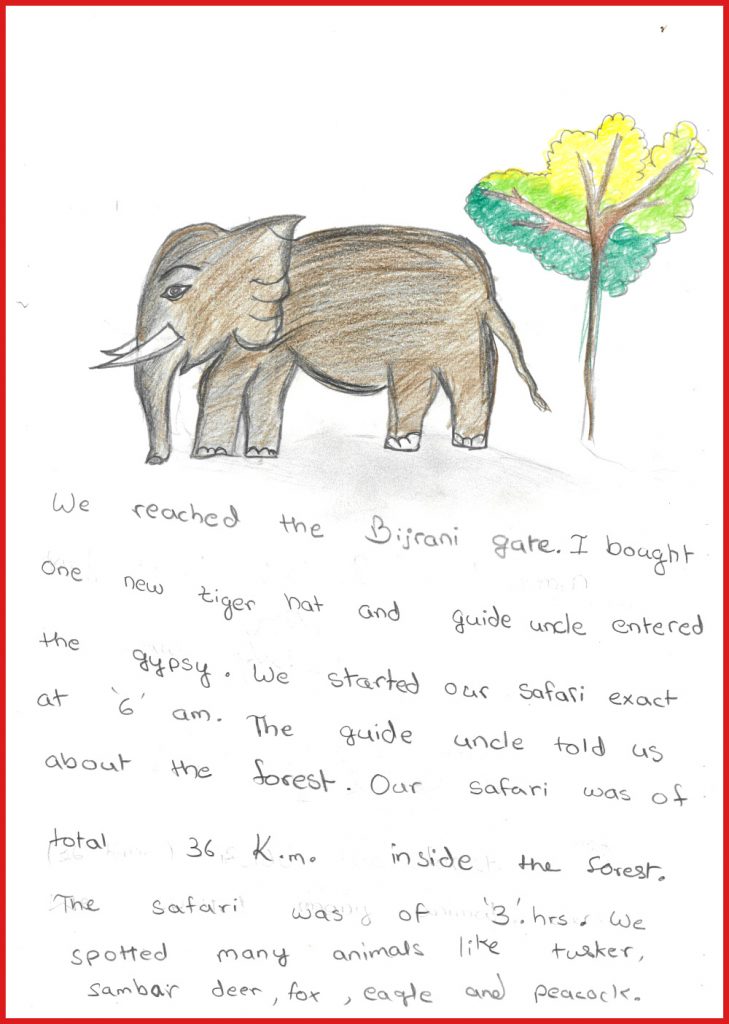 We reached the Bijrani gate. I bought
one new tiger hat and guide uncle entered
the gypsy. We started our safari exact
at '6' am. The guide uncle told us
about the forest. Our safari was of
total 36 K.m. inside the forest.
The safari was of '3'.hrs. We
spotted many animals like tusker,
sambar deer, fox, eagle and peacock.